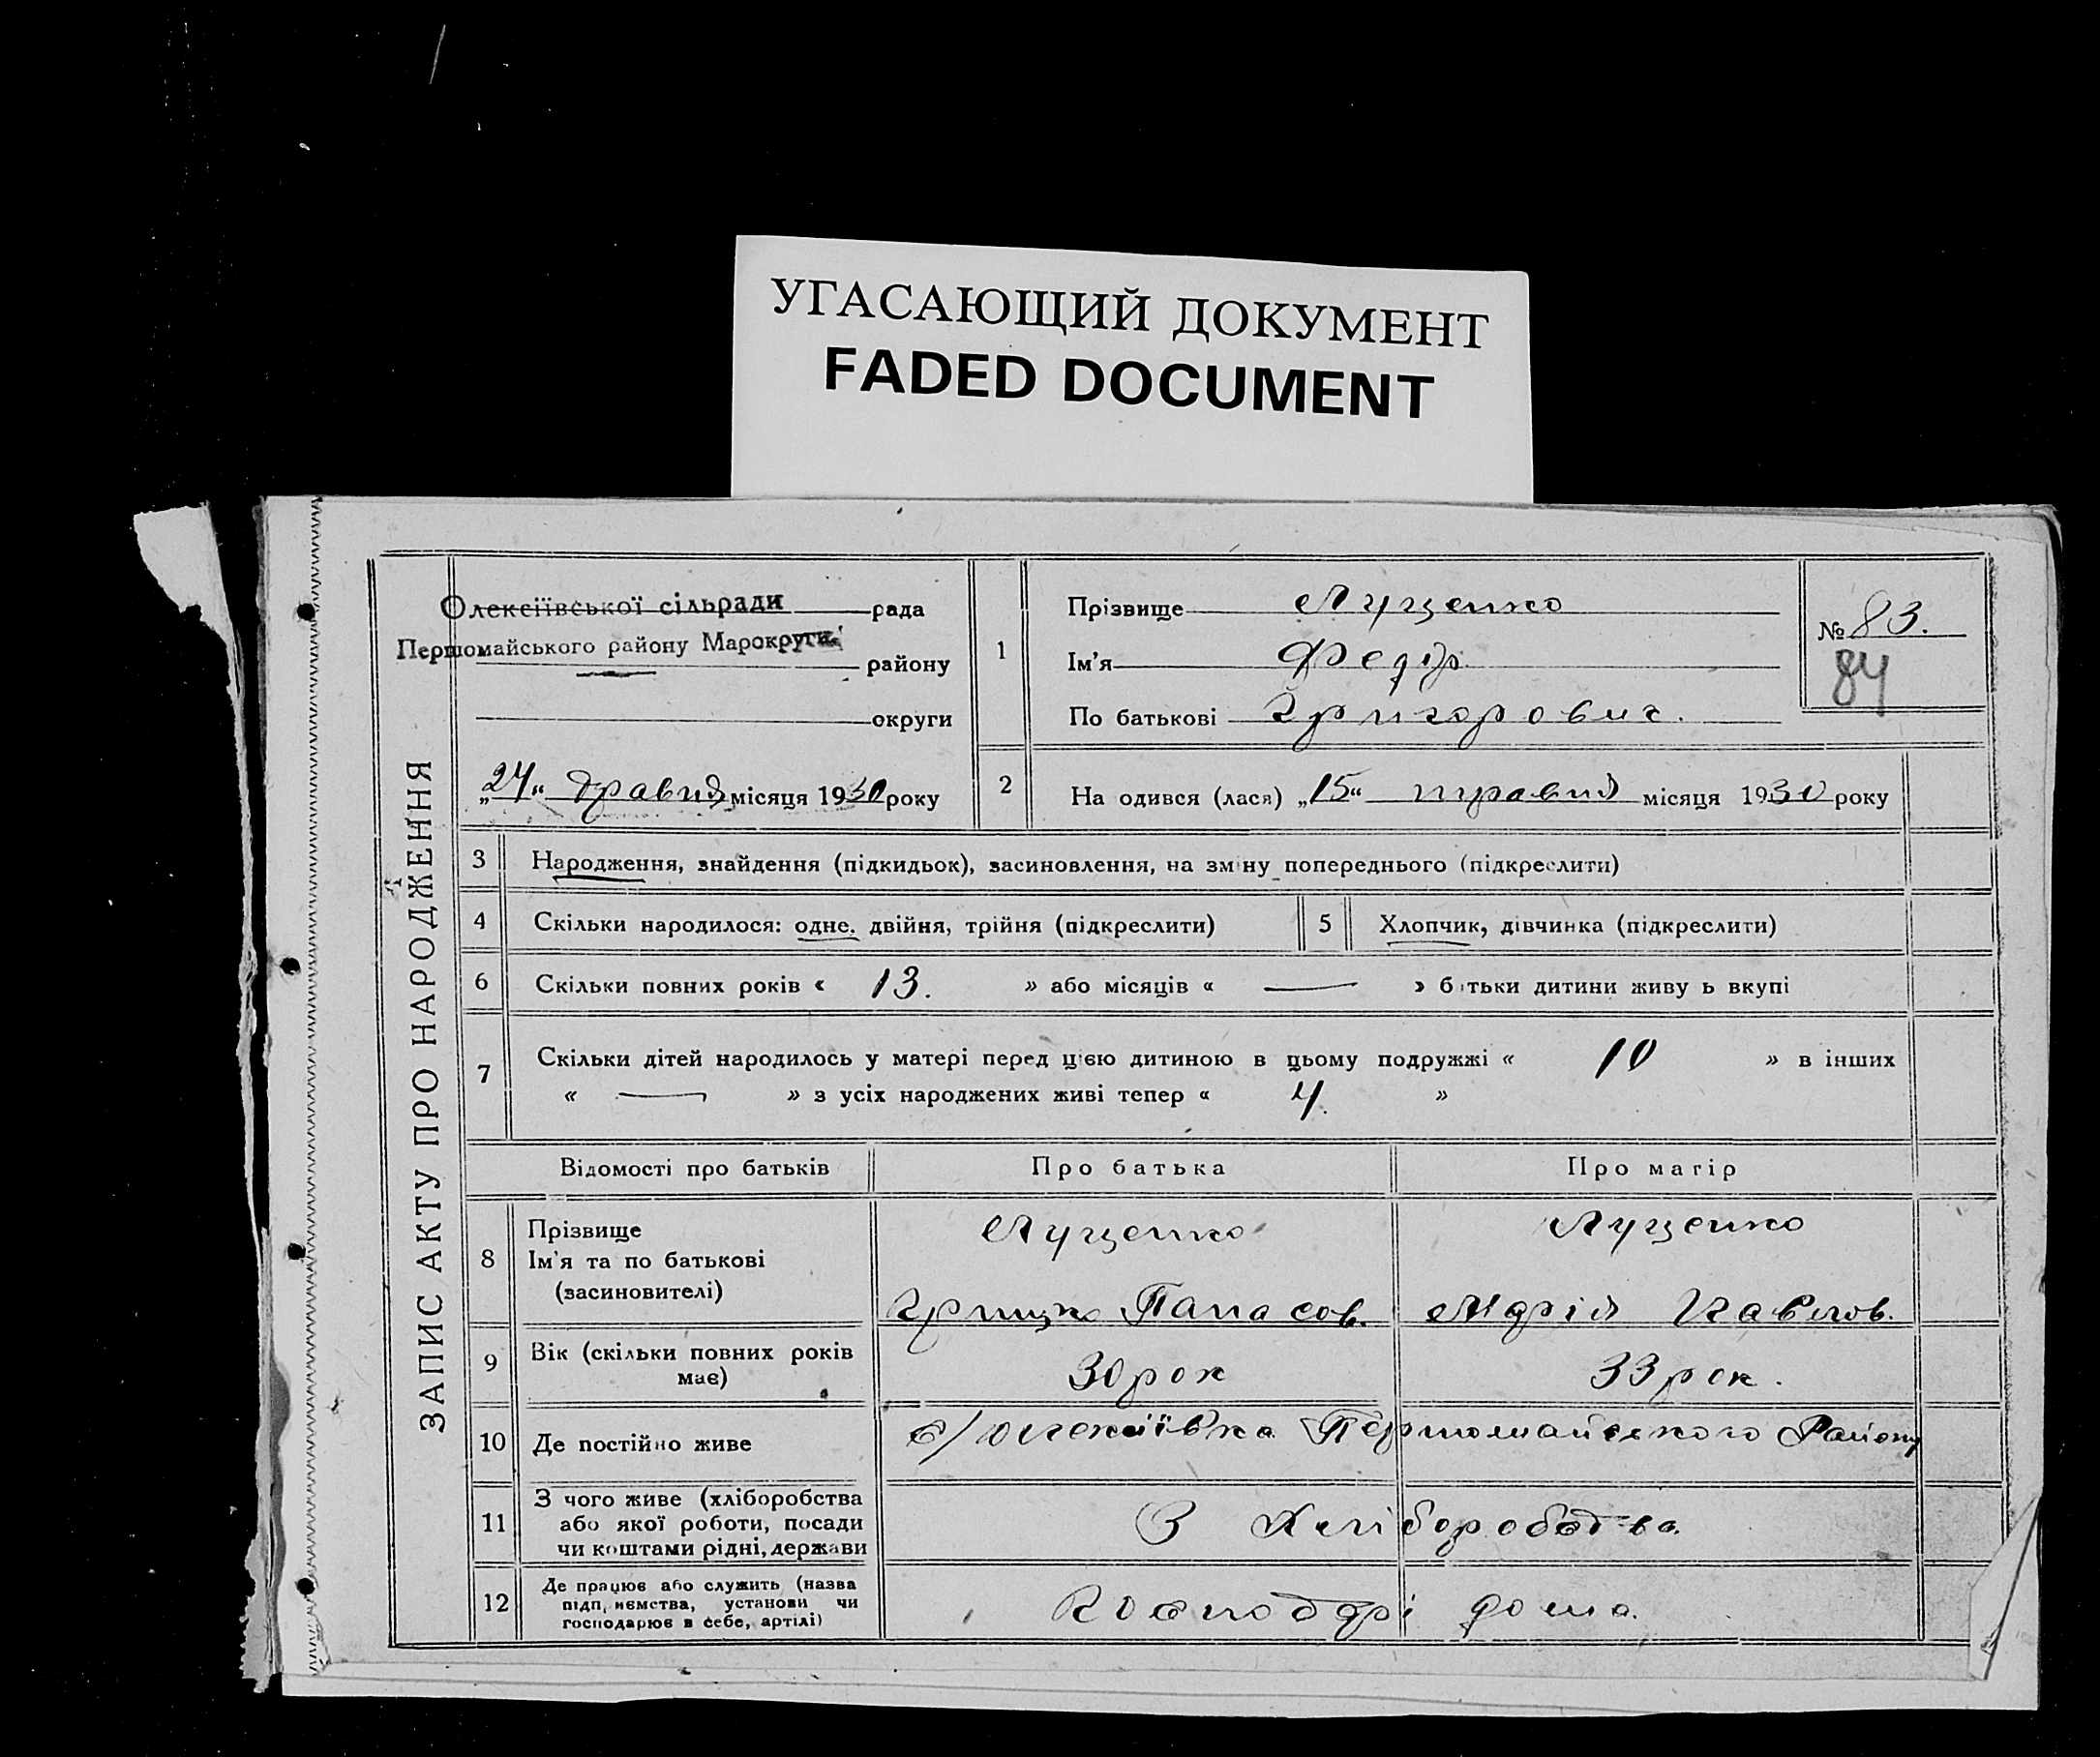 УГАСАЮЩИЙ ДОКУМЕНТ
FADED DOCUMENT
ЗАПИС АКТУ ПРО НАРОДЖЕННЯ
Олексіївської сільради рада
Першомайського району Марокруги. району
округи
„24“ травня місяця 1930 року
1
Прізвище Луценко
Ім'я Федір
По батькові Григорович.
№ 83.
84
2 На одився (лася) „15“ травня місяця 1930 року
3 Народження, знайдення (підкидьок), засиновлення, на зміну попереднього (підкреслити)
4 Скільки народилося: одне, двійня, трійня (підкреслити) 5 Хлопчик, дівчинка (підкреслити)
6 Скільки повних років « 13. » або місяців « — » батьки дитини живу ь вкупі
7 Скільки дітей народилось у матері перед цією дитиною в цьому подружжі « 10 » в інших
« — » з усіх народжених живі тепер « 4. »
Відомості про батьків Про батька Про матір
8 Прізвище Луценко Луценко
Ім'я та по батькові
(засновителі) Грицко Панасов. Павлов.
9 Вік (скільки повних років має) 30 рок 33 рок.
10 Де постійно живе с/Олексіївка Першомайського Району
11 З чого живе (хліборобства
або якої роботи, посади
чи коштами рідні, держави З Хліборобства.
12 Де працює або служить (назва
підп, иємства, установи чи
господарює в себе, артілі) дома.